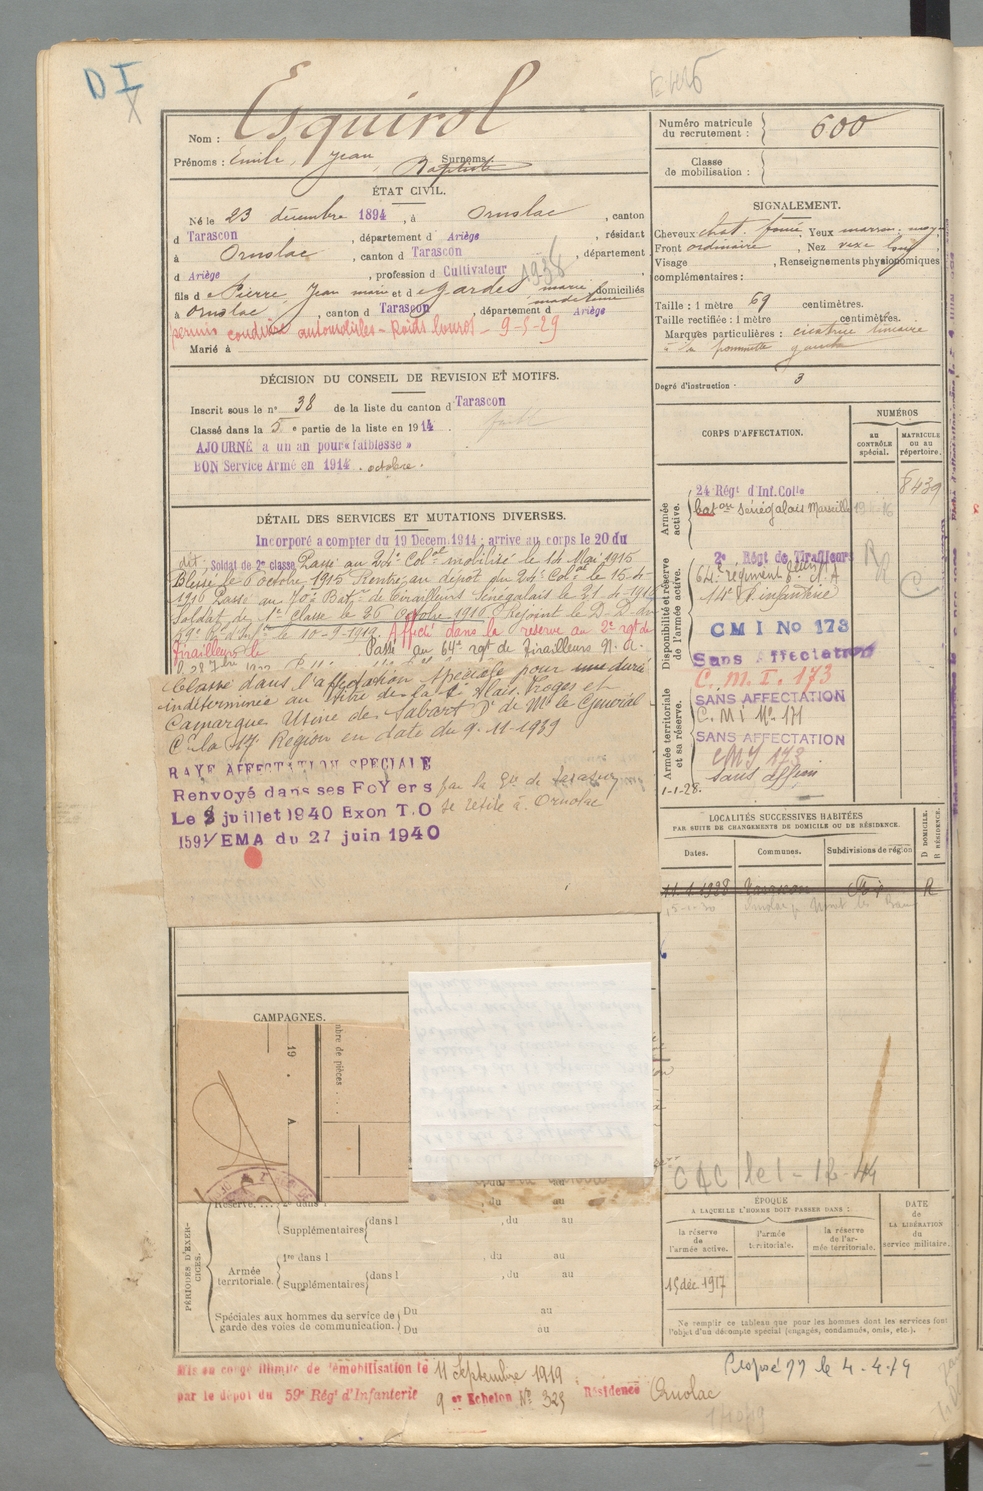 D I
Nom : Esquirol
Prénoms : Emile, Jean, Baptiste Surnoms
Numéro matricule
du recrutement : 600
Classe
de mobilisation :
ÉTAT CIVIL.
Né le 23 décembre 1894, à Ornolac, canton
d Tarascon, département d Ariège, résidant
à Ornolac, canton d Tarascon, département
d Ariège, profession d Cultivateur
1938
fils d e Pierre, Jean marie et d e Gardes marie madeleine, domiciliés
à Ornolac, canton d Tarascon, département d Ariège
permis conduire automobiles - Poids lourds - 9-5-29
Marié à
SIGNALEMENT.
Cheveux chat. foncé, Yeux marron moy
Front ordinaire, Nez vexe
Visage , Renseignements physionomiques
complémentaires :
Taille : 1 mètre 69 centimètres.
Taille rectifiée : 1 mètre centimètres.
Marques particulières : cicatrice linéaire
à la pommette gauche
Degré d'instruction : 3
DÉCISION DU CONSEIL DE REVISION ET MOTIFS.
Inscrit sous le n° 38 de la liste du canton d Tarascon
Classé dans la 5 e partie de la liste en 1914.
AJOURNÉ à un an pour « faiblesse »
BON Service Armé en 1914. octobre.
DÉTAIL DES SERVICES ET MUTATIONS DIVERSES.
Incorporé à compter du 19 Décem. 1914 ; arrivé au corps le 20 du
dit, Soldat de 2e classe Passé au 24e Col al mobilisé le 14 Mai 1915
Blessé le 6 octobre 1915 Rentré au dépôt du 24e Col al le 15-4-
1916 Passé au 70e Bat on de Tirailleurs Sénégalais le 21-4-1916
Soldat de 1e classe le 26 octobre 1916 Rejoint le D.D. du
59e le 10-9-1919. Affecté dans la réserve au 2e rgt de
tirailleurs le Passé au 64e rgt de Tirailleurs N. A.
Classé dans l'affectation spéciale pour une durée
indéterminée au titre de la Alais. Froges et
Camargue Usine de Sabart de Mr le Général
Ct la 17e Région en date du 9-11-1939
RAYÉ AFFECTATION SPECIALE
Renvoyé dans ses FoYers par la Gie de Tarascon
Le 8 juillet 1940 Exon T.O se retire à Ornolac
1591/EMA du 27 juin 1940
CORPS D'AFFECTATION.
NUMÉROS
AU CONTRÔLE spécial.
MATRICULE OU AU répertoire.
Armée active.
24 Régt d'Inf. Colle 8439
bat on Sénégalais Marseille
Disponibilité et réserve de l'armée active.
2e Régt de Tirailleurs
64e régiment N.A
14e d'infanterie
CMI No 173
Sans Affectation
C. M. I. 173
Armée territoriale et sa réserve.
SANS AFFECTATION
C. M I No 171
SANS AFFECTATION
CMI 173
sans affion
1-1-28.
LOCALITÉS SUCCESSIVES HABITÉES
PAR SUITE DE CHANGEMENTS DE DOMICILE OU DE RÉSIDENCE.
Dates. Communes. Subdivisions de région
D DOMICILE. R RÉSIDENCE.
11-1-1928 Tarascon Foix R
CAMPAGNES.
19 .
A
mbre de pièces . . .
CAC le 1-12-44
PÉRIODES D'EXERCICES.
Réserve. . . . dans l
, du au
Supplémentaires dans l , du au
Armée territoriale.
1re dans l , du au
Supplémentaires dans l , du au
Spéciales aux hommes du service de
garde des voies de communication.
Du au
Du au
ÉPOQUE
A LAQUELLE L'HOMME DOIT PASSER DANS :
la réserve de l'armée active.
l'armée territoriale.
la réserve de l'armée territoriale.
DATE de LA LIBÉRATION du service militaire.
15 déc 1917
Ne remplir ce tableau que pour les hommes dont les services font
l'objet d'un décompte spécial (engagés, condamnés, omis, etc.).
Mis en congé illimité de démobilisation le 11 Septembre 1919
par le dépôt du 59e Régt d'Infanterie 9 er Echelon No 325 Résidence Ornolac